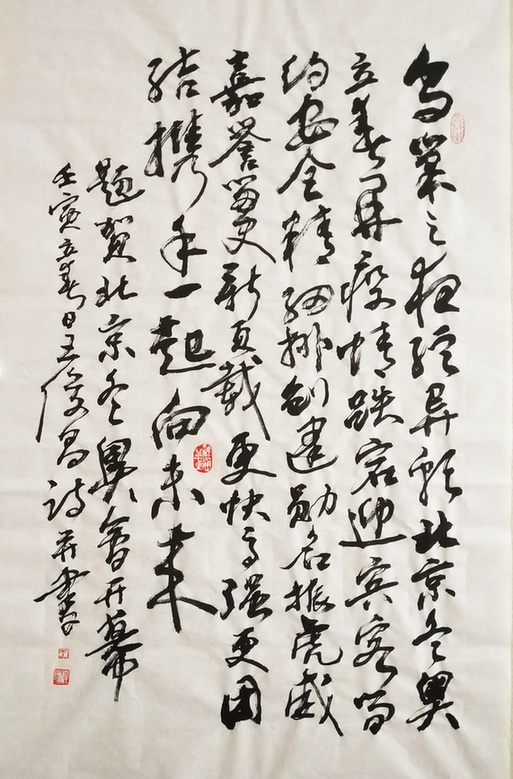 鸟巢之夜绽异彩北京冬奥
立春开疫情跌宕迎宾客简
约安全精细排创建勋名振虎威
嘉誉留史新页载更快高强更团
结携手一起向未来
题贺北京冬奥會开幕
壬寅立春日王俊昌诗并书